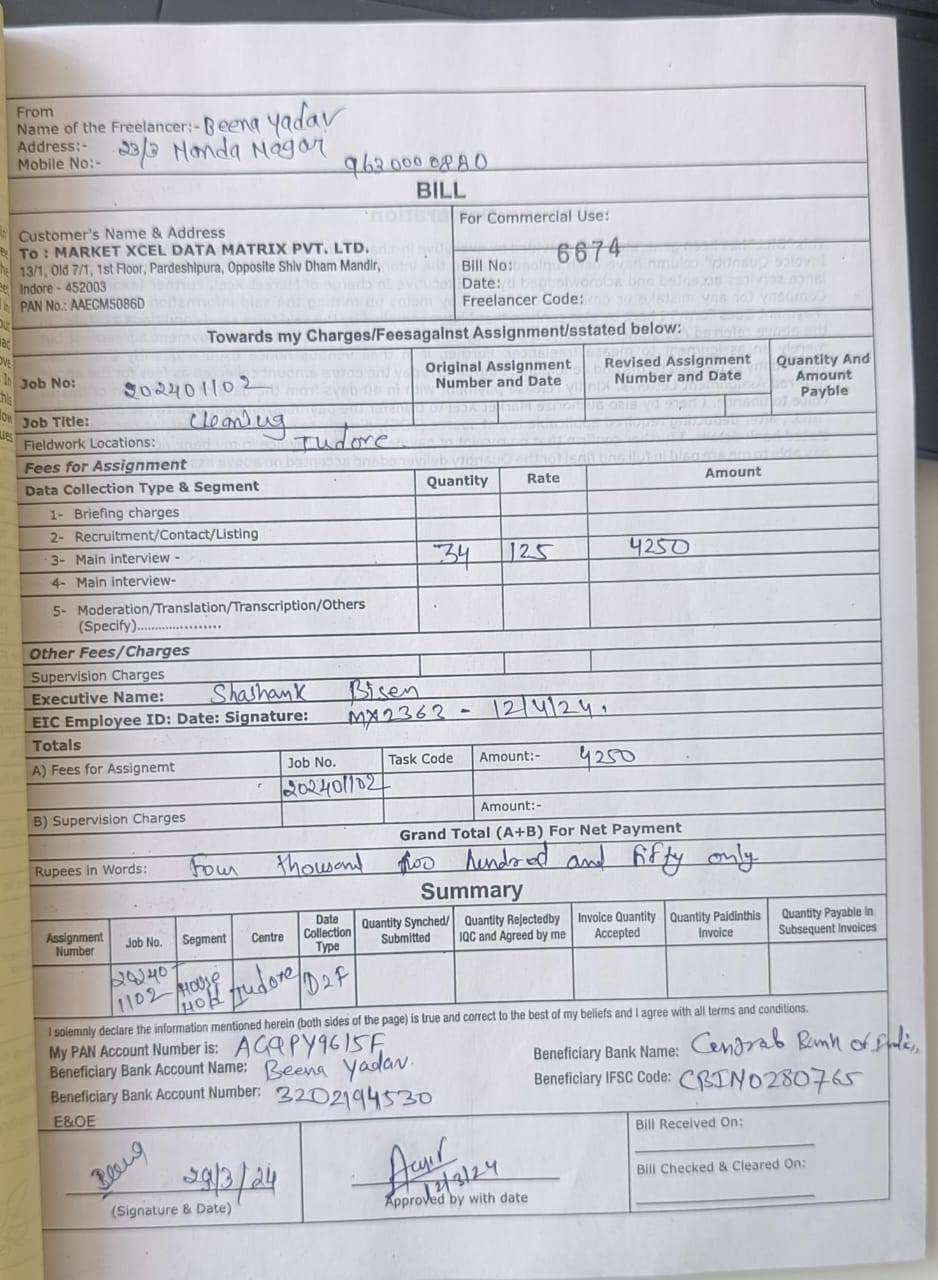 From
Name of the Freelancer:- Beena Yadav
Address:- 23/3 Nanda Nagar
Mobile No:- 9630000880
BILL
Customer's Name & Address
To : MARKET XCEL DATA MATRIX PVT. LTD.
13/1, Old 7/1, 1st Floor, Pardeshipura, Opposite Shiv Dham Mandir,
Indore - 452003
PAN No.: AAECM5086D
For Commercial Use:
Bill No: 6674
Date:
Freelancer Code:
Towards my Charges/Feesagainst Assignment/sstated below:
Job No: 202401102
Original Assignment Number and Date
Revised Assignment Number and Date
Quantity And Amount Payble
Job Title: Cleaning
Fieldwork Locations: Indore
Fees for Assignment
Data Collection Type & Segment Quantity Rate Amount
1- Briefing charges
2- Recruitment/Contact/Listing
3- Main interview - 34 125 4250
4- Main interview-
5- Moderation/Translation/Transcription/Others
(Specify).....................
Other Fees/Charges
Supervision Charges
Executive Name: Shashank Bisen
EIC Employee ID: Date: Signature: MX2363 - 12/4/24.
Totals
A) Fees for Assignemt Job No. Task Code Amount:- 4250
202401102
B) Supervision Charges Amount:-
Grand Total (A+B) For Net Payment
Rupees in Words: Four thousand two hundred and fifty only
Summary
Assignment Number Job No. Segment Centre Date Collection Type Quantity Synched/ Submitted Quantity Rejectedby IQC and Agreed by me Invoice Quantity Accepted Quantity Paidinthis Invoice Quantity Payable in Subsequent Invoices
20240 1102 House Hold Indore D2F
I solemnly declare the information mentioned herein (both sides of the page) is true and correct to the best of my beliefs and I agree with all terms and conditions.
My PAN Account Number is: AGQPY9615F
Beneficiary Bank Name: Central Bank of India
Beneficiary Bank Account Name: Beena Yadav.
Beneficiary IFSC Code: CBIN0280765
Beneficiary Bank Account Number: 3202194530
E&OE
Beena 29/3/24
(Signature & Date)
12/3/24
Approved by with date
Bill Received On:
Bill Checked & Cleared On: